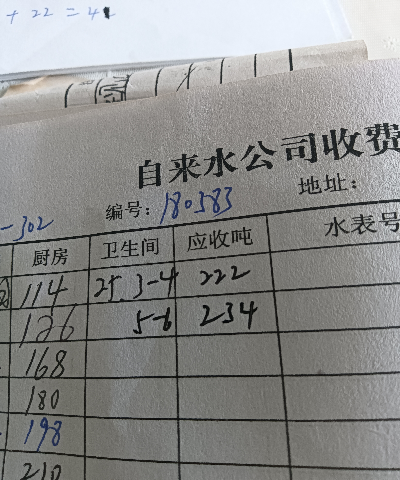 + 22 = 4
自来水公司收费
编号: 180583 地址:
-302
厨房 卫生间 应收吨 水表号
114 25.3-4 222
126 5-6 234
168
180
198
210